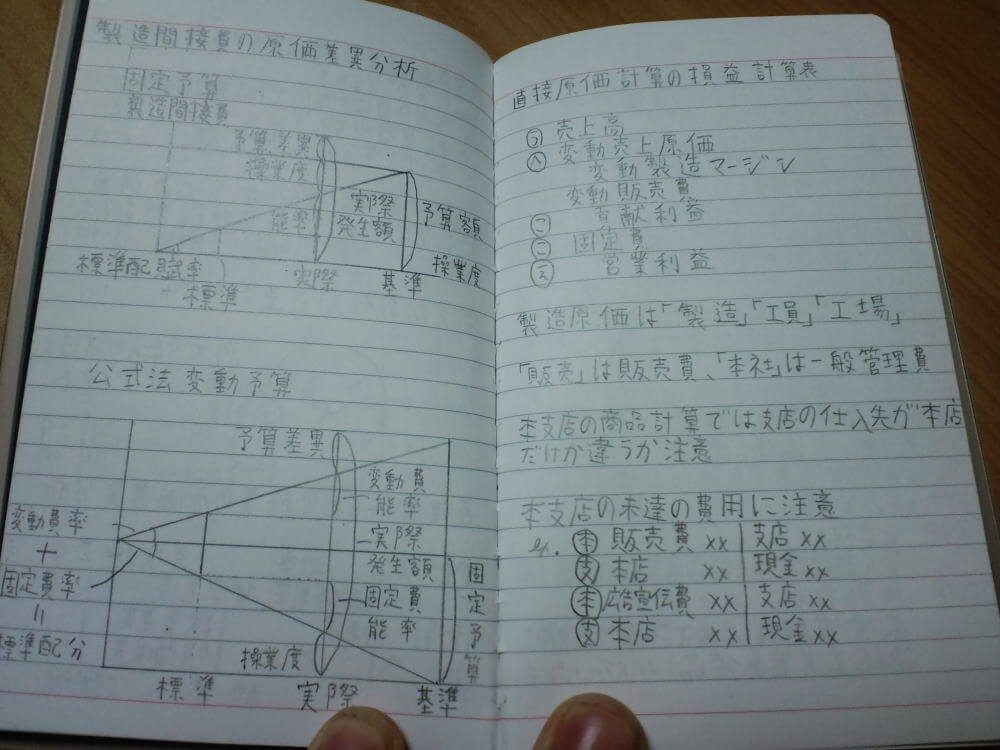 製造間接費の原価差異分析
固定予算
製造間接費
予算差異
操業度
能率
実際
発生額
予算額
標準配賦率
標準
実際
基準
操業度
公式法変動予算
予算差異
変動費
能率
実際
発生額
固定費
能率
固定予算
変動費率
+
固定費率
=
標準配分
操業度
標準
実際
基準
直接原価計算の損益計算表
売上高
変動売上原価
変動製造マージン
変動販売費
貢献利益
固定費
営業利益
製造原価は「製造」「工員」「工場」
「販売」は販売費、「本社」は一般管理費
本支店の商品計算では支店の仕入先が本店
だけか違うか注意
本支店の未達の費用に注意
ex. 本 販売費 xx 支店 xx
支 本店 xx 現金 xx
本 広告宣伝費 xx 支店 xx
支 本店 xx 現金 xx